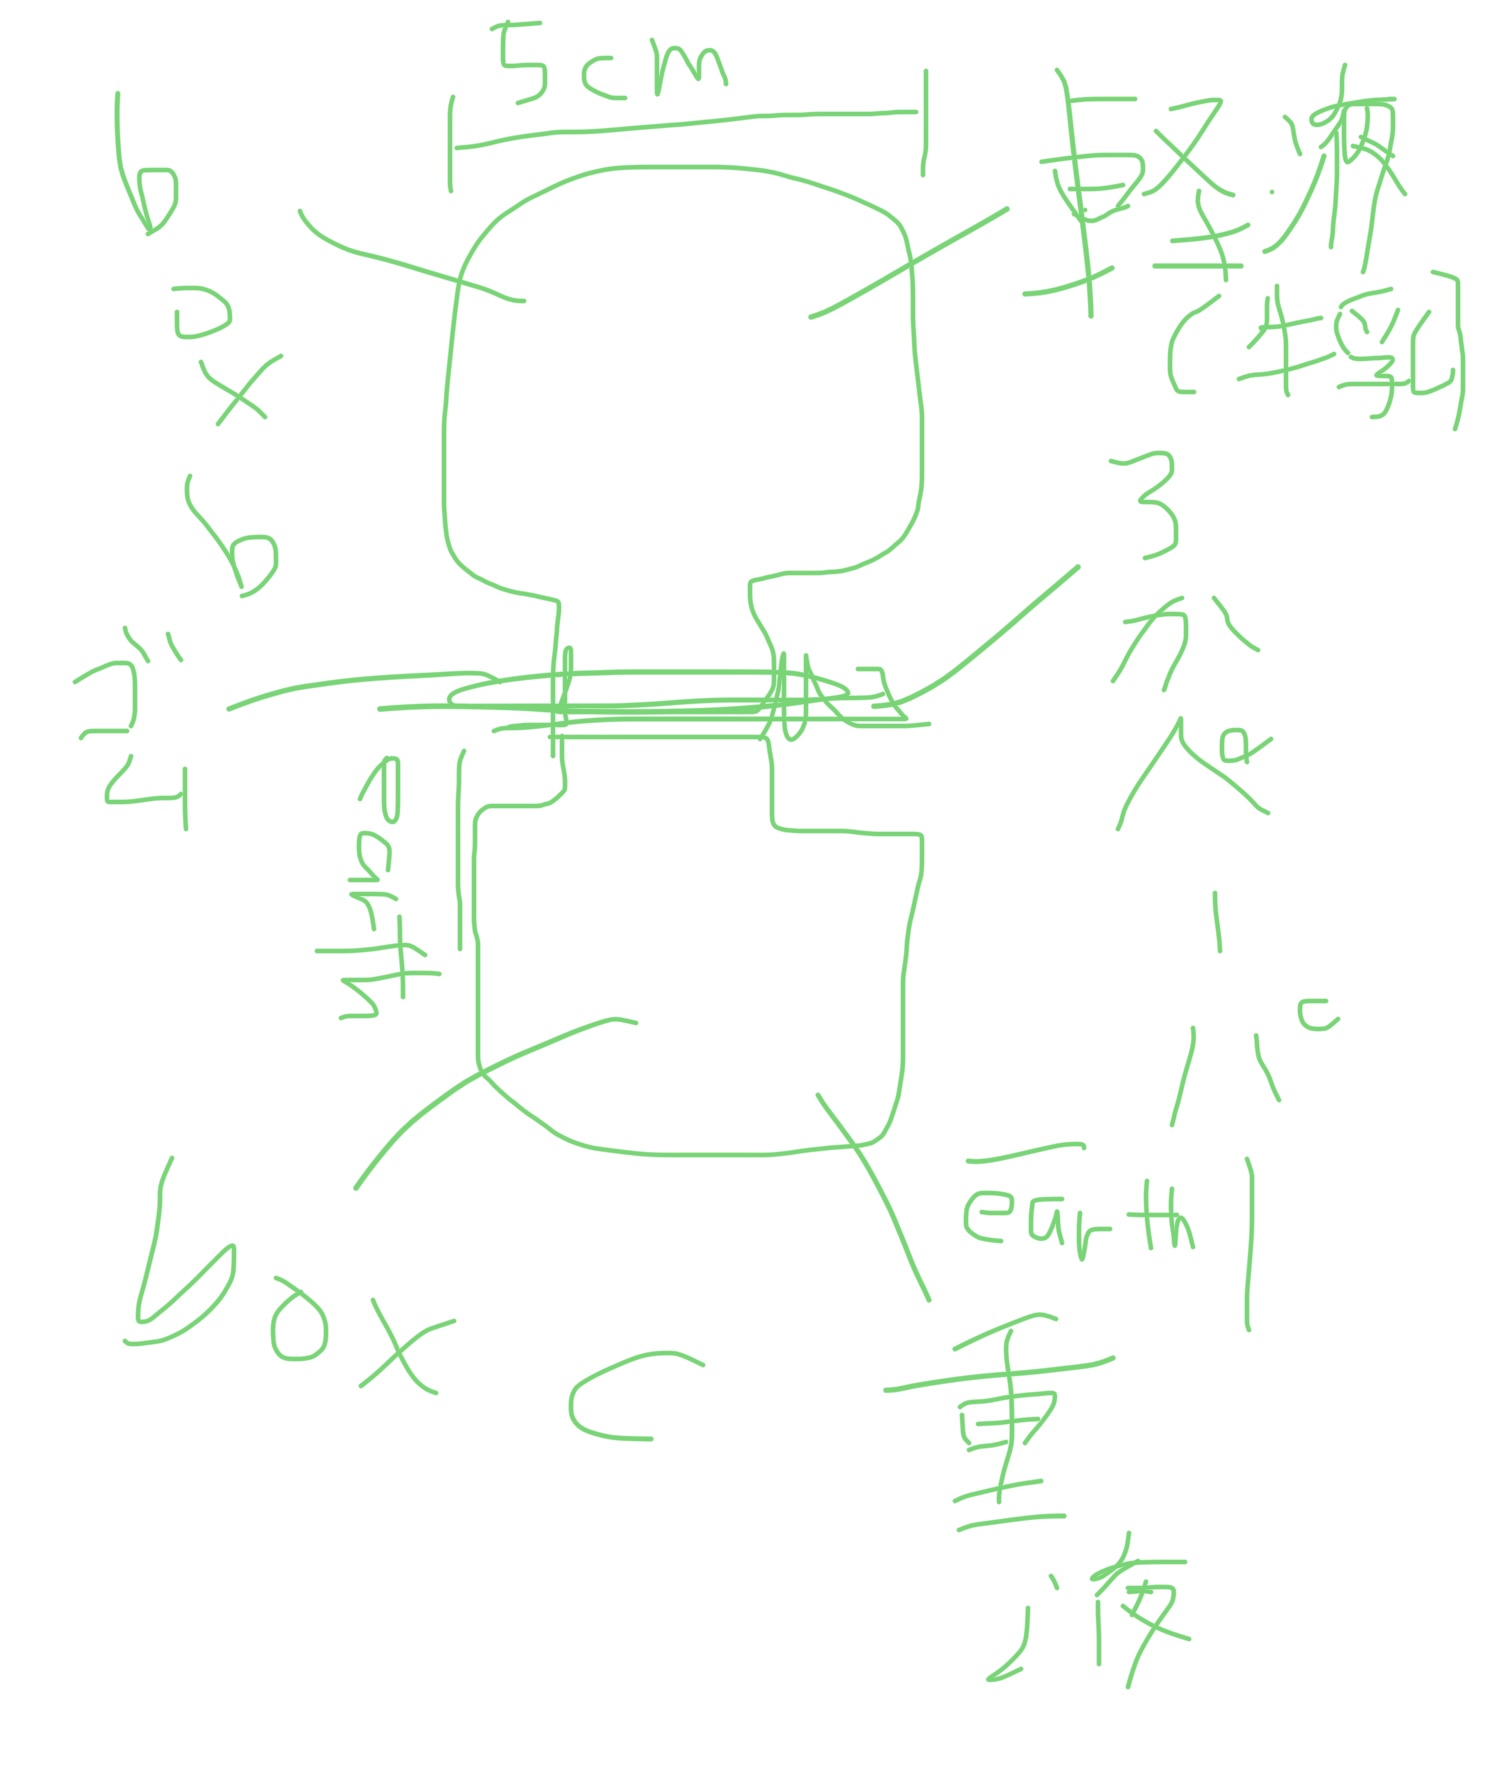 5cm
box b
軽液
(牛乳)
ろかペーパー
ゴム
earth
earth
box c
重液